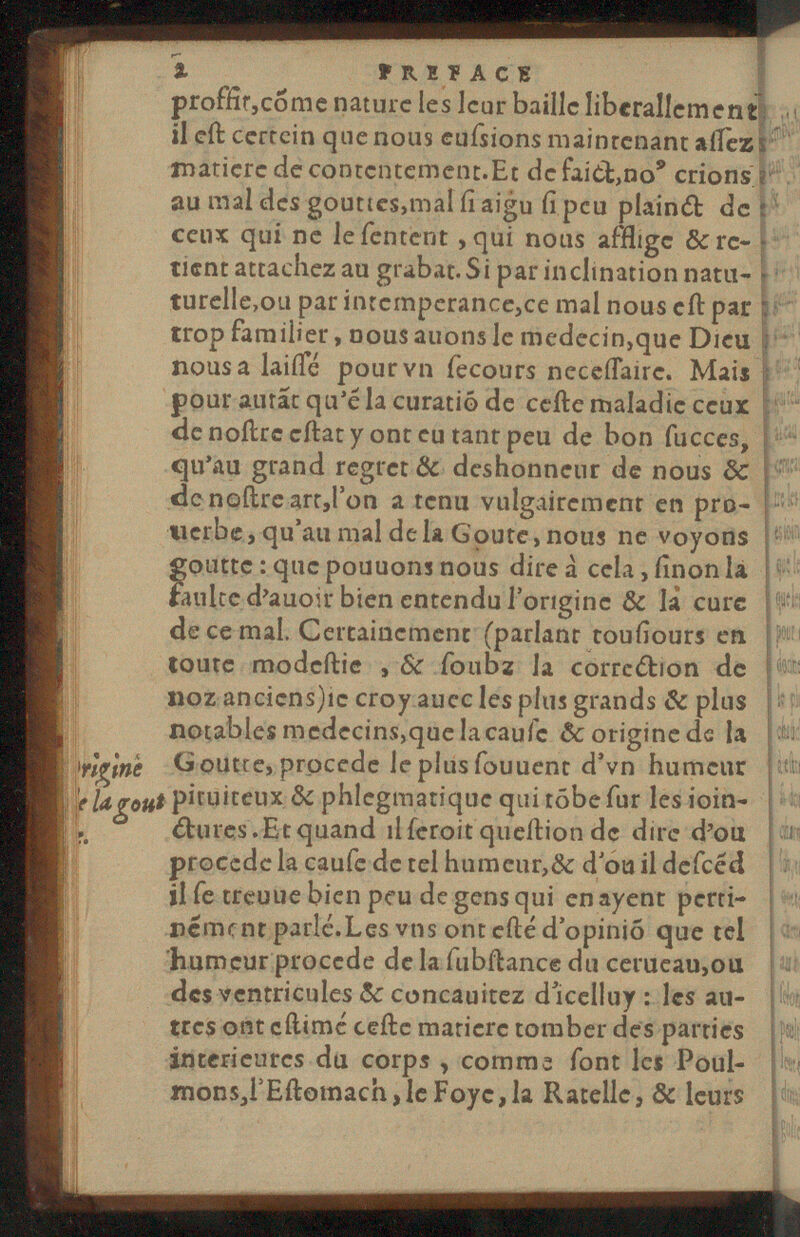 2 PREFACE
proffit,cõme nature les leur baille liberallement
il eſt certein que nous euſsions maintenant aſſez
matiere de contentement.Et de faict,no⁹ crions
au mal des gouttes,mal ſi aigu ſi peu plainct de
ceux qui ne le ſentent , qui nous afflige & re-
tient attachez au grabat. Si par inclination natu-
turelle,ou par intemperance,ce mal nous eſt par
trop familier , nous auons le medecin,que Dieu
nous a laiſſé pour vn ſecours neceſſaire. Mais
pour autãt qu'é la curatiõ de ceſte maladie ceux
de noſtre eſtat y ont eu tant peu de bon ſucces,
qu'au grand regret & deshonneur de nous &
de noſtre art,l'on a tenu vulgairement en pro-
uerbe, qu'au mal de la Goute, nous ne voyons
goutte : que pouuons nous dire à cela , ſinon la
faulte d'auoir bien entendu l'origine & la cure
de ce mal. Certainement (parlant touſiours en
toute modeſtie , & ſoubz la correction de
noz anciens)ie croy auec les plus grands & plus
notables medecins,que la cauſe & origine de la
rigine Goutte, procede le plus ſouuent d'vn humeur
e la gout pituiteux & phlegmatique qui tõbe ſur les ioin-
ctures.Et quand il ſeroit queſtion de dire d'ou
procede la cauſe de tel humeur,& d'ou il deſcéd
il ſe treuue bien peu de gens qui en ayent perti-
némcnt parlé.Les vns ont eſté d'opiniõ que tel
humeur procede de la ſubſtance du cerueau,ou
des ventricules & concauitez d'icelluy : les au-
tres ont eſtimé ceſte matiere tomber des parties
interieures du corps , comme ſont les Poul-
mons,l'Eſtomach , le Foye, la Ratelle, & leurs